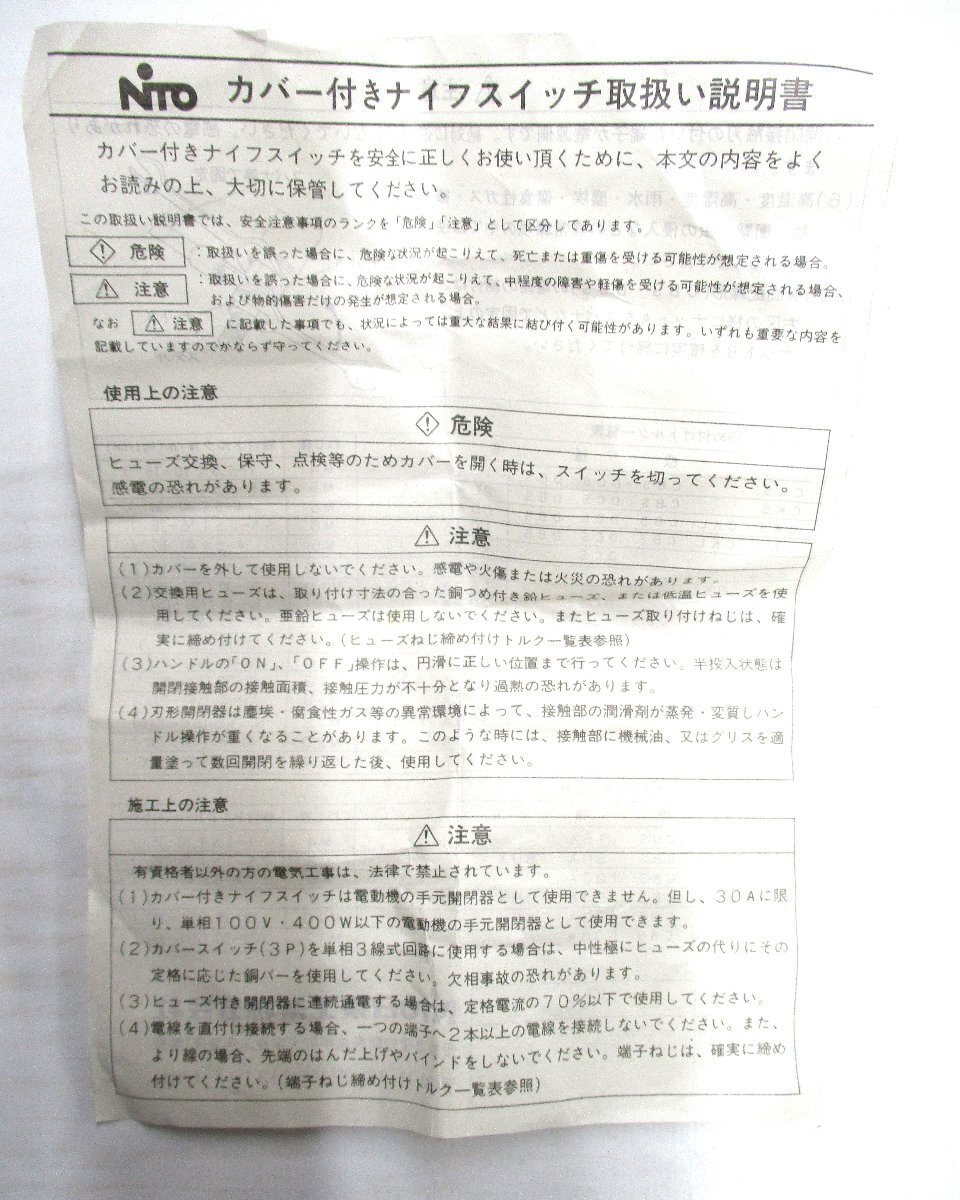 NITO カバー付きナイフスイッチ取扱い説明書
カバー付きナイフスイッチを安全に正しくお使い頂くために、本文の内容をよく
お読みの上、大切に保管してください。
この取扱い説明書では、安全注意事項のランクを「危険」「注意」として区分してあります。
危険 ：取扱いを誤った場合に、危険な状況が起こりえて、死亡または重傷を受ける可能性が想定される場合。
注意 ：取扱いを誤った場合に、危険な状況が起こりえて、中程度の障害や軽傷を受ける可能性が想定される場合、
および物的傷害だけの発生が想定される場合。
なお 注意 に記載した事項でも、状況によっては重大な結果に結び付く可能性があります。いずれも重要な内容を
記載していますのでかならず守ってください。
使用上の注意
危険
ヒューズ交換、保守、点検等のためカバーを開く時は、スイッチを切ってください。
感電の恐れがあります。
注意
(1)カバーを外して使用しないでください。感電や火傷または火災の恐れがあります。
(2)交換用ヒューズは、取り付け寸法の合った銅つめ付き鉛ヒューズ、または低温ヒューズを使
用してください。亜鉛ヒューズは使用しないでください。またヒューズ取り付けねじは、確
実に締め付けてください。(ヒューズねじ締め付けトルク一覧表参照)
(3)ハンドルの「ON」、「OFF」操作は、円滑に正しい位置まで行ってください。半投入状態は
開閉接触部の接触面積、接触圧力が不十分となり過熱の恐れがあります。
(4)刃形開閉器は塵埃・腐食性ガス等の異常環境によって、接触部の潤滑剤が蒸発・変質しハン
ドル操作が重くなることがあります。このような時には、接触部に機械油、又はグリスを適
量塗って数回開閉を繰り返した後、使用してください。
施工上の注意
注意
有資格者以外の方の電気工事は、法律で禁止されています。
(1)カバー付きナイフスイッチは電動機の手元開閉器として使用できません。但し、30Aに限
り、単相100V・400W以下の電動機の手元開閉器として使用できます。
(2)カバースイッチ(3P)を単相3線式回路に使用する場合は、中性極にヒューズの代りにその
定格に応じた銅バーを使用してください。欠相事故の恐れがあります。
(3)ヒューズ付き開閉器に連続通電する場合は、定格電流の70%以下で使用してください。
(4)電線を直付け接続する場合、一つの端子へ2本以上の電線を接続しないでください。また、
より線の場合、先端のはんだ上げやバインドをしないでください。端子ねじは、確実に締め
付けてください。(端子ねじ締め付けトルク一覧表参照)